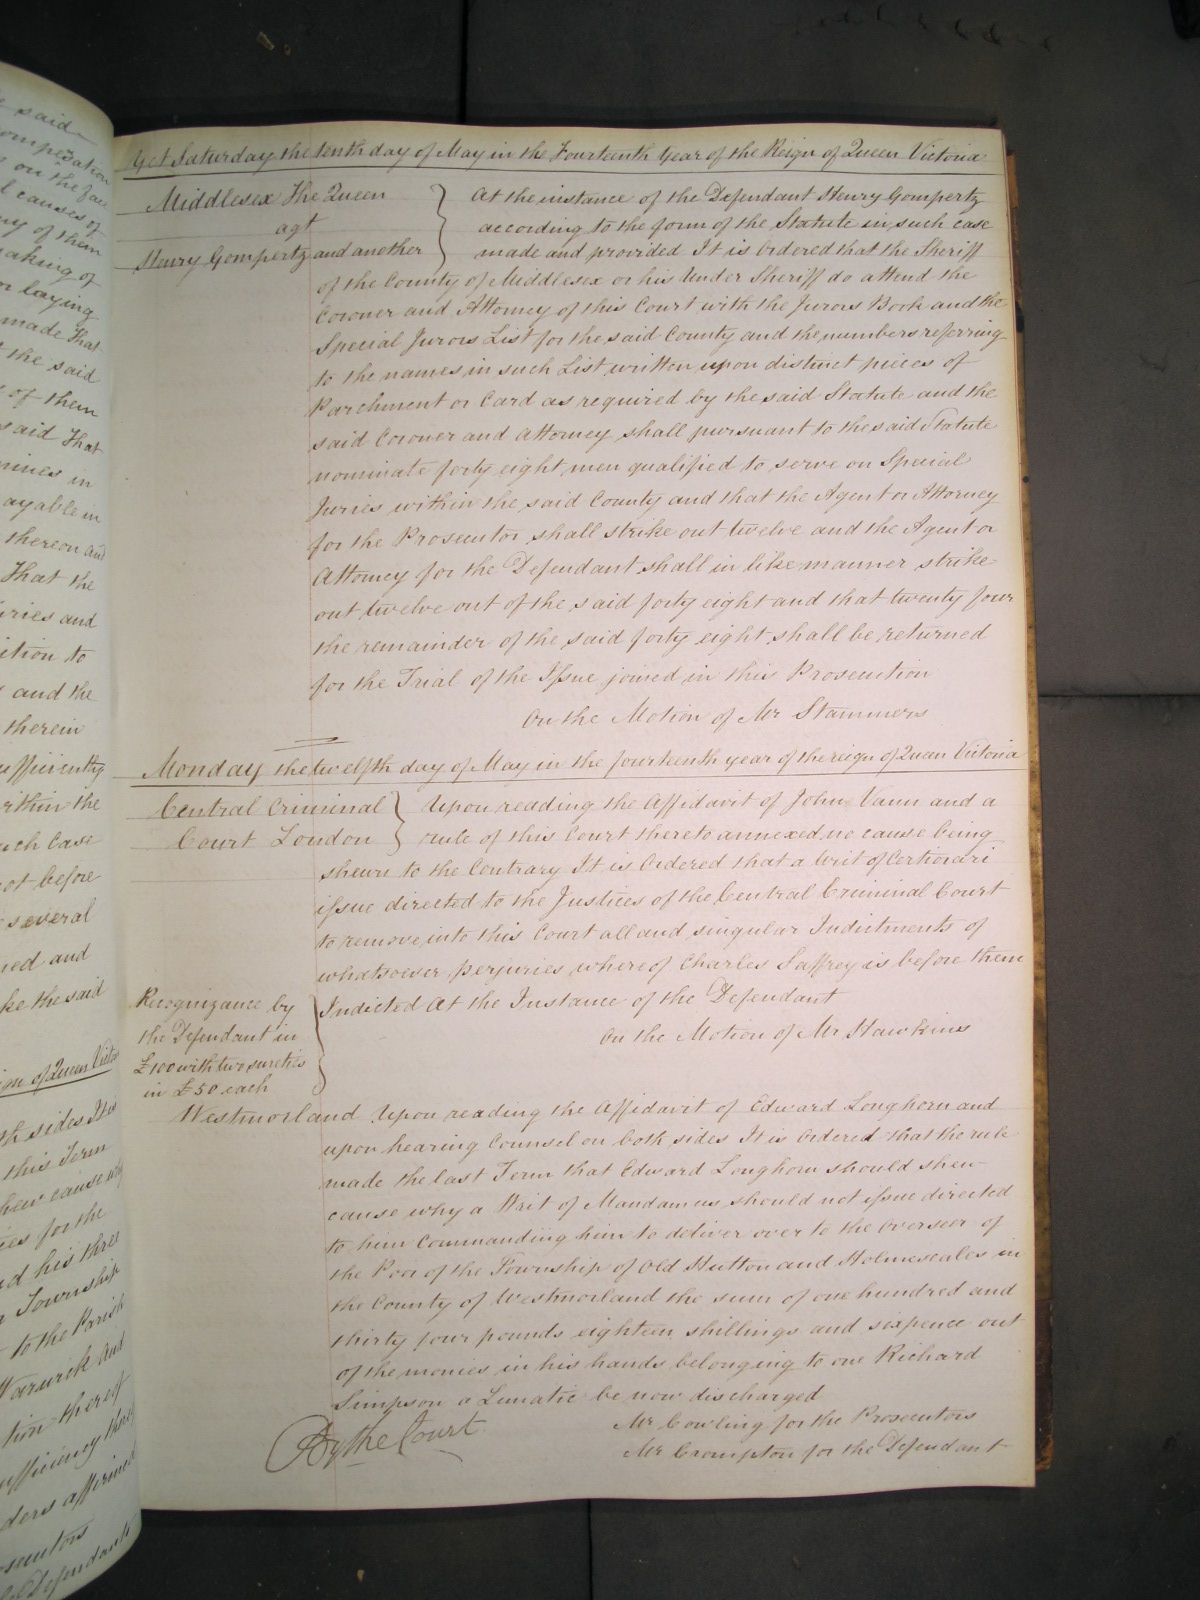 said
ompensation
on the face
l causes of
ny of them
aking of
n laying
made That
the said
of them
said That
mines in
ayable in
thereon and
That the
uries and
ition to
and the
therein
ufficiently
within the
uch Case
not before
several
ned and
ke the said
ign of Queen Victo
th sides It is
this Term
hew cause why
ces for the
nd his three
Township
to the Parish
Warwick and
tion thereof
ufficiency that
ders affirmed
osecutors
Defendants
Yet Saturday the tenth day of May in the Fourteenth Year of the Reign of Queen Victoria
Middlesex The Queen
agt
Henry Gompertz and another
At the instance of the Defendant Henry Gompertz
according to the form of the Statute in such case
made and provided It is Ordered that the Sheriff
of the County of Middlesex or his Under Sheriff do attend the
Coroner and Attorney of this Court with the Jurors Book and the
Special Jurors List for the said County and the numbers referring
to the names in such List written upon distinct pieces of
Parchment or Card as required by the said Statute and the
said Coroner and Attorney shall pursuant to the said Statute
nominate forty eight men qualified to serve on Special
Juries within the said County and that the Agent or Attorney
for the Prosecutor shall strike out twelve and the Agent or
Attorney for the Defendant shall in like manner strike
out twelve out of the said forty eight and that twenty four
the remainder of the said forty eight shall be returned
for the Trial of the Issue joined in this Prosecution
On the Motion of Mr Stammers
Monday the twelfth day of May in the fourteenth year of the reign of Queen Victoria
Central Criminal
Court London
Upon reading the Affidavit of John Vann and a
rule of this Court thereto annexed no cause being
shewn to the Contrary It is Ordered that a Writ of Certiorari
issue directed to the Justices of the Central Criminal Court
to remove into this Court all and singular Indictments of
whatsoever perjuries whereof Charles Jaffrey is before them
Indicted At the Instance of the Defendant
On the Motion of Mr Hawkins
Recognizance by
the Defendant in
£100 with two sureties
in £50 each
Westmorland Upon reading the Affidavit of Edward Longhorn and
upon hearing Counsel on both sides It is Ordered that the rule
made the last Term that Edward Longhorn should shew
cause why a Writ of Mandamus should not issue directed
to him Commanding him to deliver over to the Overseer of
the Poor of the Township of Old Hutton and Holmescales in
the County of Westmorland the sum of one hundred and
thirty four pounds eighteen shillings and sixpence out
of the monies in his hands belonging to one Richard
Simpson a Lunatic be now discharged
Mr Cowling for the Prosecutors
Mr Crompton for the Defendant
By the Court